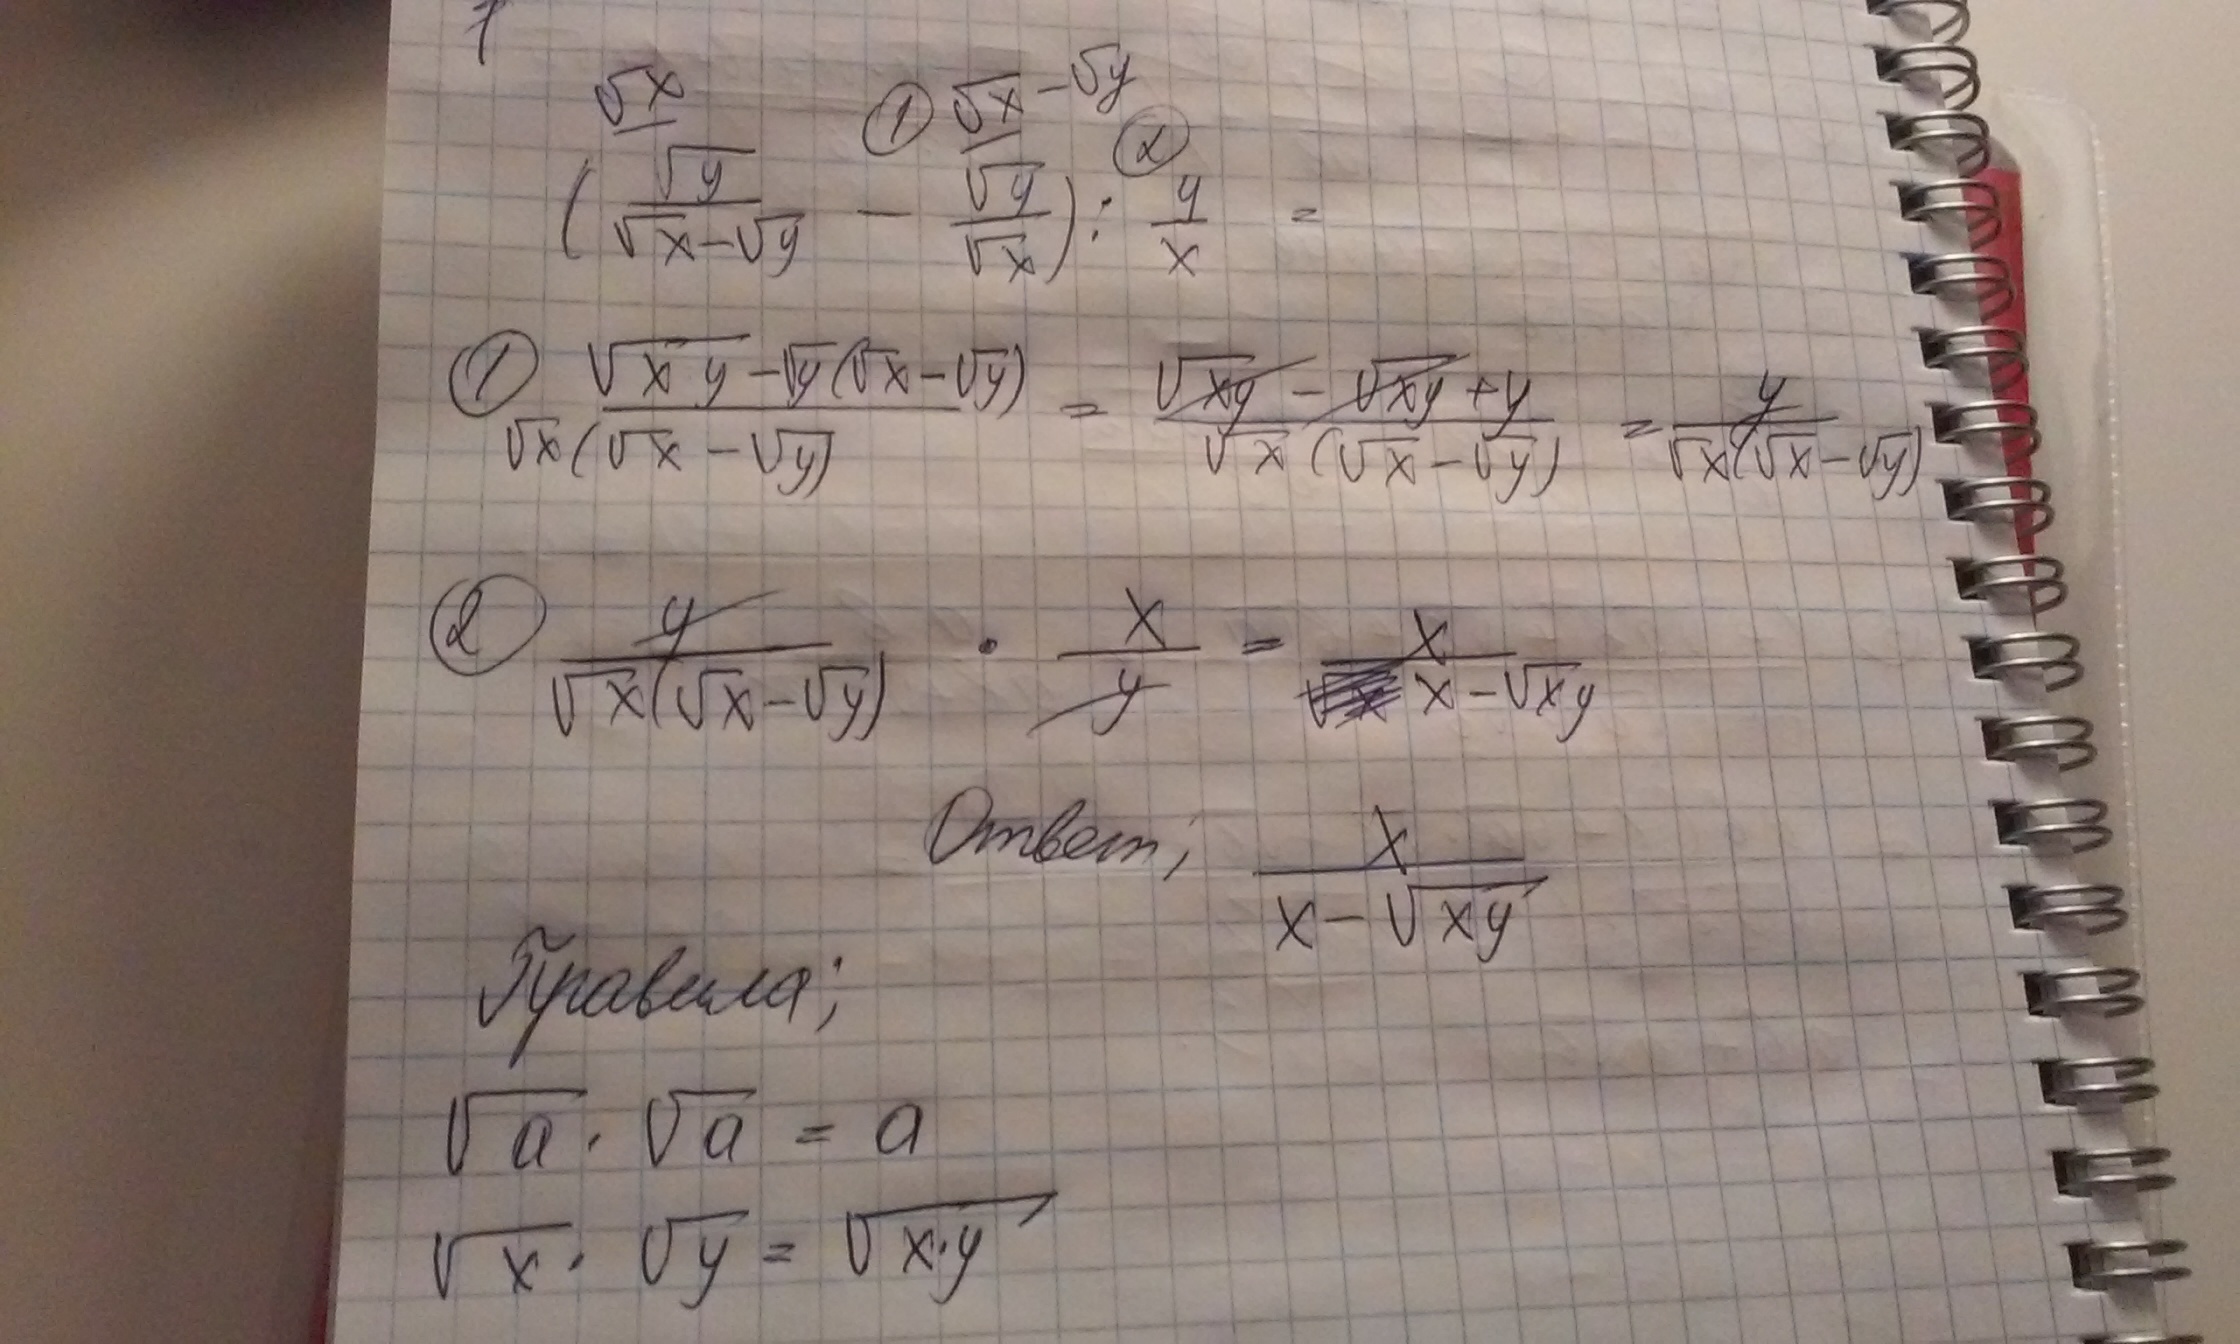 √x ① √x − √y
②
(√y/(√x−√y) − √y/√x) : y/x =
① (√xy − √y(√x−√y))/(√x(√x−√y)) = (√xy − √xy + y)/(√x(√x−√y)) = y/(√x(√x−√y))
② y/(√x(√x−√y)) · x/y = x/(x−√xy)
Ответ; x/(x−√xy)
Правила;
√a · √a = a
√x · √y = √x·y